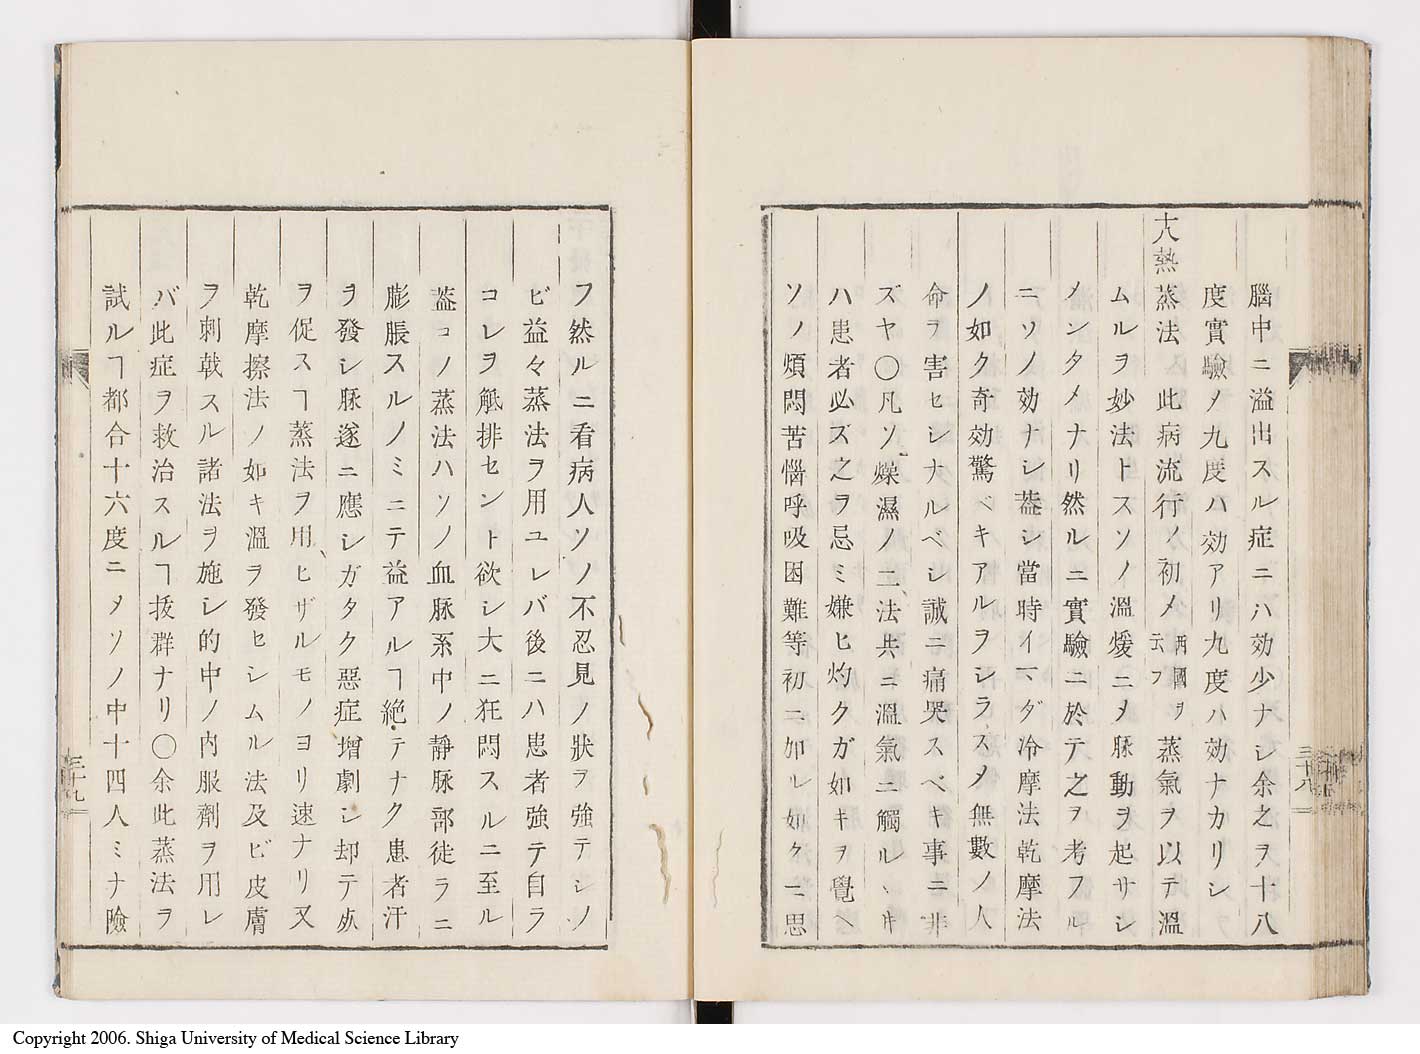 腦中ニ溢出スル症ニハ効少ナシ余之ヲ十八
度實驗ノ九度ハ効アリ九度ハ効ナカリシ
大熱蒸法　此病流行ノ初メ両國ヲ蒸氣ヲ以テ溫
云フ
ムルヲ妙法トスソノ溫煖ニメ脉動ヲ起サシ
メンタメナリ然ルニ實驗ニ於テ之ヲ考フル
ニソノ効ナシ葢シ當時イマダ冷摩法乾摩法
ノ如ク奇効驚ベキアルヲシラズメ無數ノ人
命ヲ害セシナルベシ誠ニ痛哭スベキ事ニ非
ズヤ〇凡ソ燥濕ノ二法共ニ溫氣ニ觸ルヽキ
ハ患者必ズ之ヲ忌ミ嫌ヒ灼クガ如キヲ覺ヘ
ソノ煩悶苦惱呼吸困難等初ニ如ル如クニ思
三十八
フ然ルニ看病人ソノ不忍見ノ狀ヲ強テシノ
ビ益々蒸法ヲ用ユレバ後ニハ患者強テ自ラ
コレヲ觝排セント欲シ大ニ狂悶スルニ至ル
葢コノ蒸法ハソノ血脉系中ノ靜脉部徒ラニ
膨脹スルノミニテ益アルヿ絶テナク患者汗
ヲ發シ脉遂ニ應シガタク惡症増劇シ却テ
ヲ促スヿ蒸法ヲ用ヒザルモノヨリ速ナリ又
乾摩擦法ノ如キ溫ヲ發セシムル法及ビ皮膚
ヲ刺戟スル諸法ヲ施シ的中ノ内服劑ヲ用レ
バ此症ヲ救治スルヿ拔群ナリ〇余此蒸法ヲ
試ルヿ都合十六度ニメソノ中十四人ミナ險
三十九
Copyright 2006. Shiga University of Medical Science Library